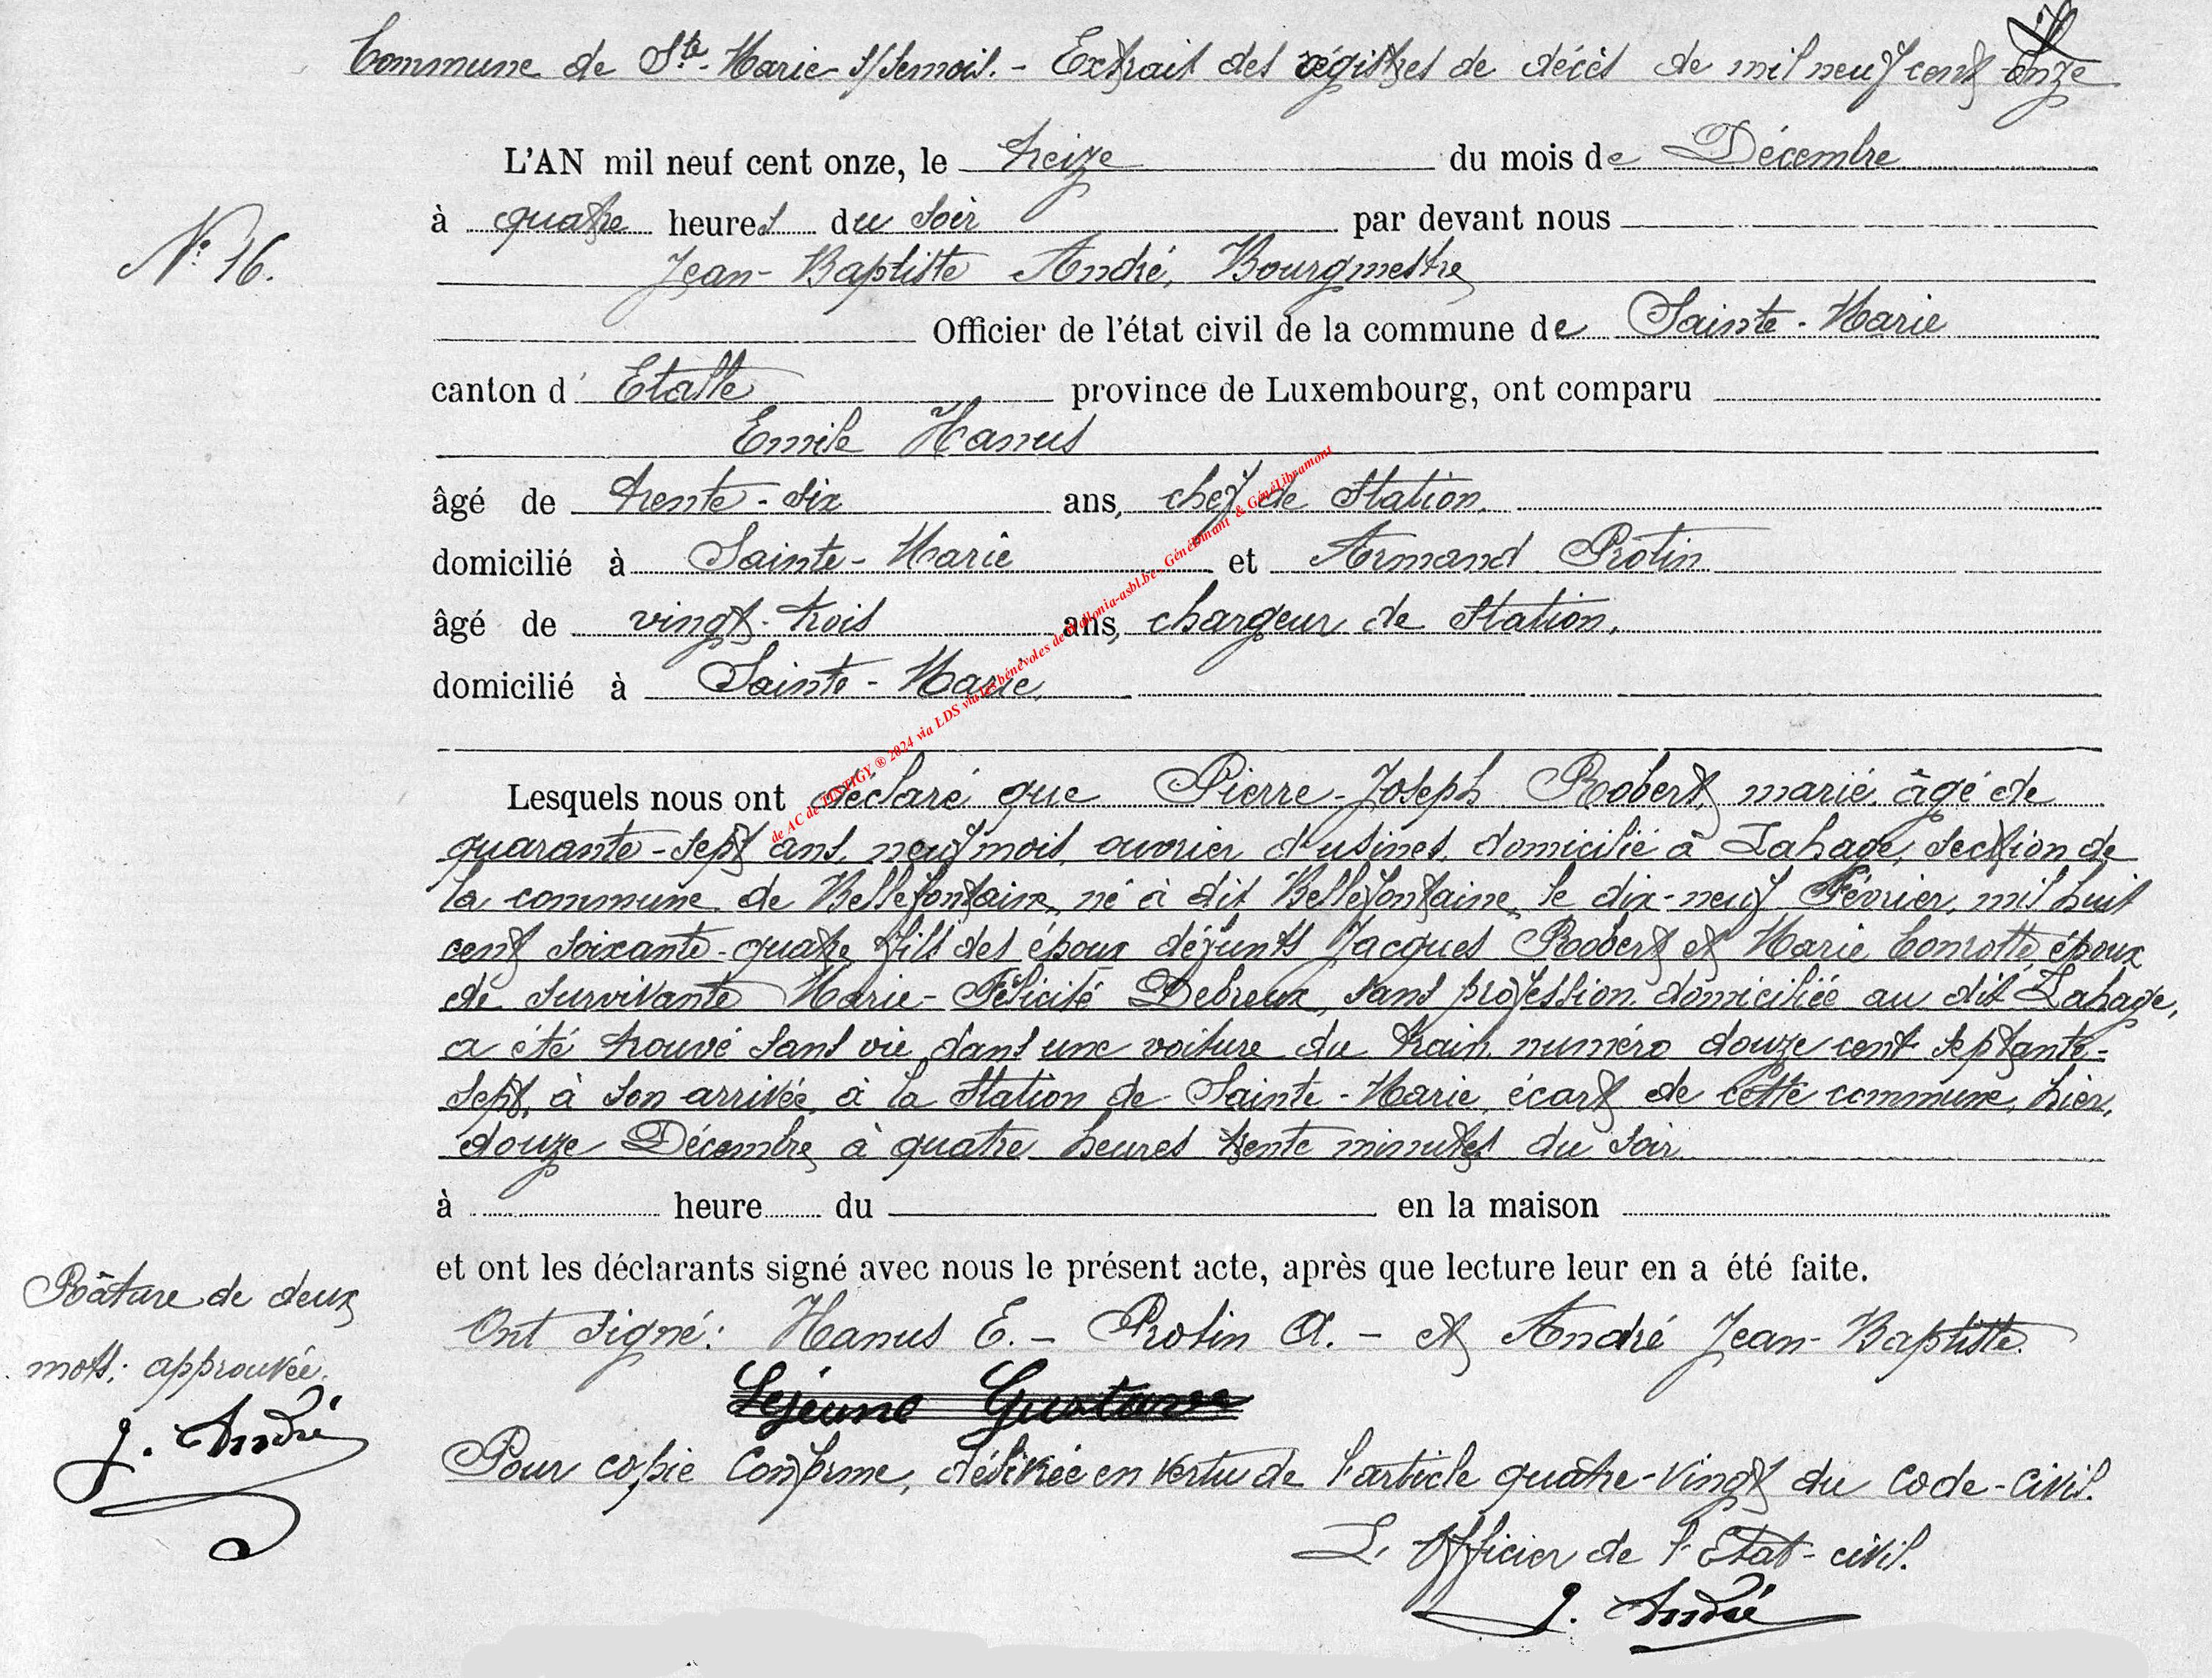 Commune de Ste-Marie s/Semois. - Extrait des régistres de décès de mil neuf cent onze
L'AN mil neuf cent onze, le treize du mois de Décembre
à quatre heures du soir par devant nous
N° 16.
Jean-Baptiste André, Bourgmestre
Officier de l'état civil de la commune de Sainte-Marie
canton d' Etalle province de Luxembourg, ont comparu
Emile Hanus
âgé de trente-six ans, chef de Station.
domicilié à Sainte-Marie et Armand Protin
âgé de vingt-trois ans, chargeur de Station,
domicilié à Sainte-Marie
de AC de TINTIGY ® 2024 via LDS via les bénévoles de Wallonia-asbl.be - GénéDinant & GénéLibramont
Lesquels nous ont déclaré que Pierre-Joseph Robert, marié, âgé de
quarante-sept ans, neuf mois, ouvrier d'usines, domicilié à Lahage, section de
la commune de Bellefontaine, né à dit Bellefontaine, le dix-neuf Février, mil huit
cent soixante-quatre, fils des époux défunts Jacques Robert et Marie Conrotte, époux
de survivante Marie-Félicité Debreux, sans profession, domiciliée au dit Lahage,
a été trouvé sans vie, dans une voiture du train numéro douze cent septante-
sept, à son arrivée, à la station de Sainte-Marie, écart de cette commune, hier,
douze Décembre à quatre heures trente minutes du soir.
à heure du en la maison
et ont les déclarants signé avec nous le présent acte, après que lecture leur en a été faite.
Râture de deux
mots: approuvée.
J. André
Ont signé: Hanus E. - Protin A. - et André Jean-Baptiste.
Lejeune Gustave
Pour copie conforme, délivrée en vertu de l'article quatre-vingt du code-civil.
L'Officier de l'Etat-civil.
J. André